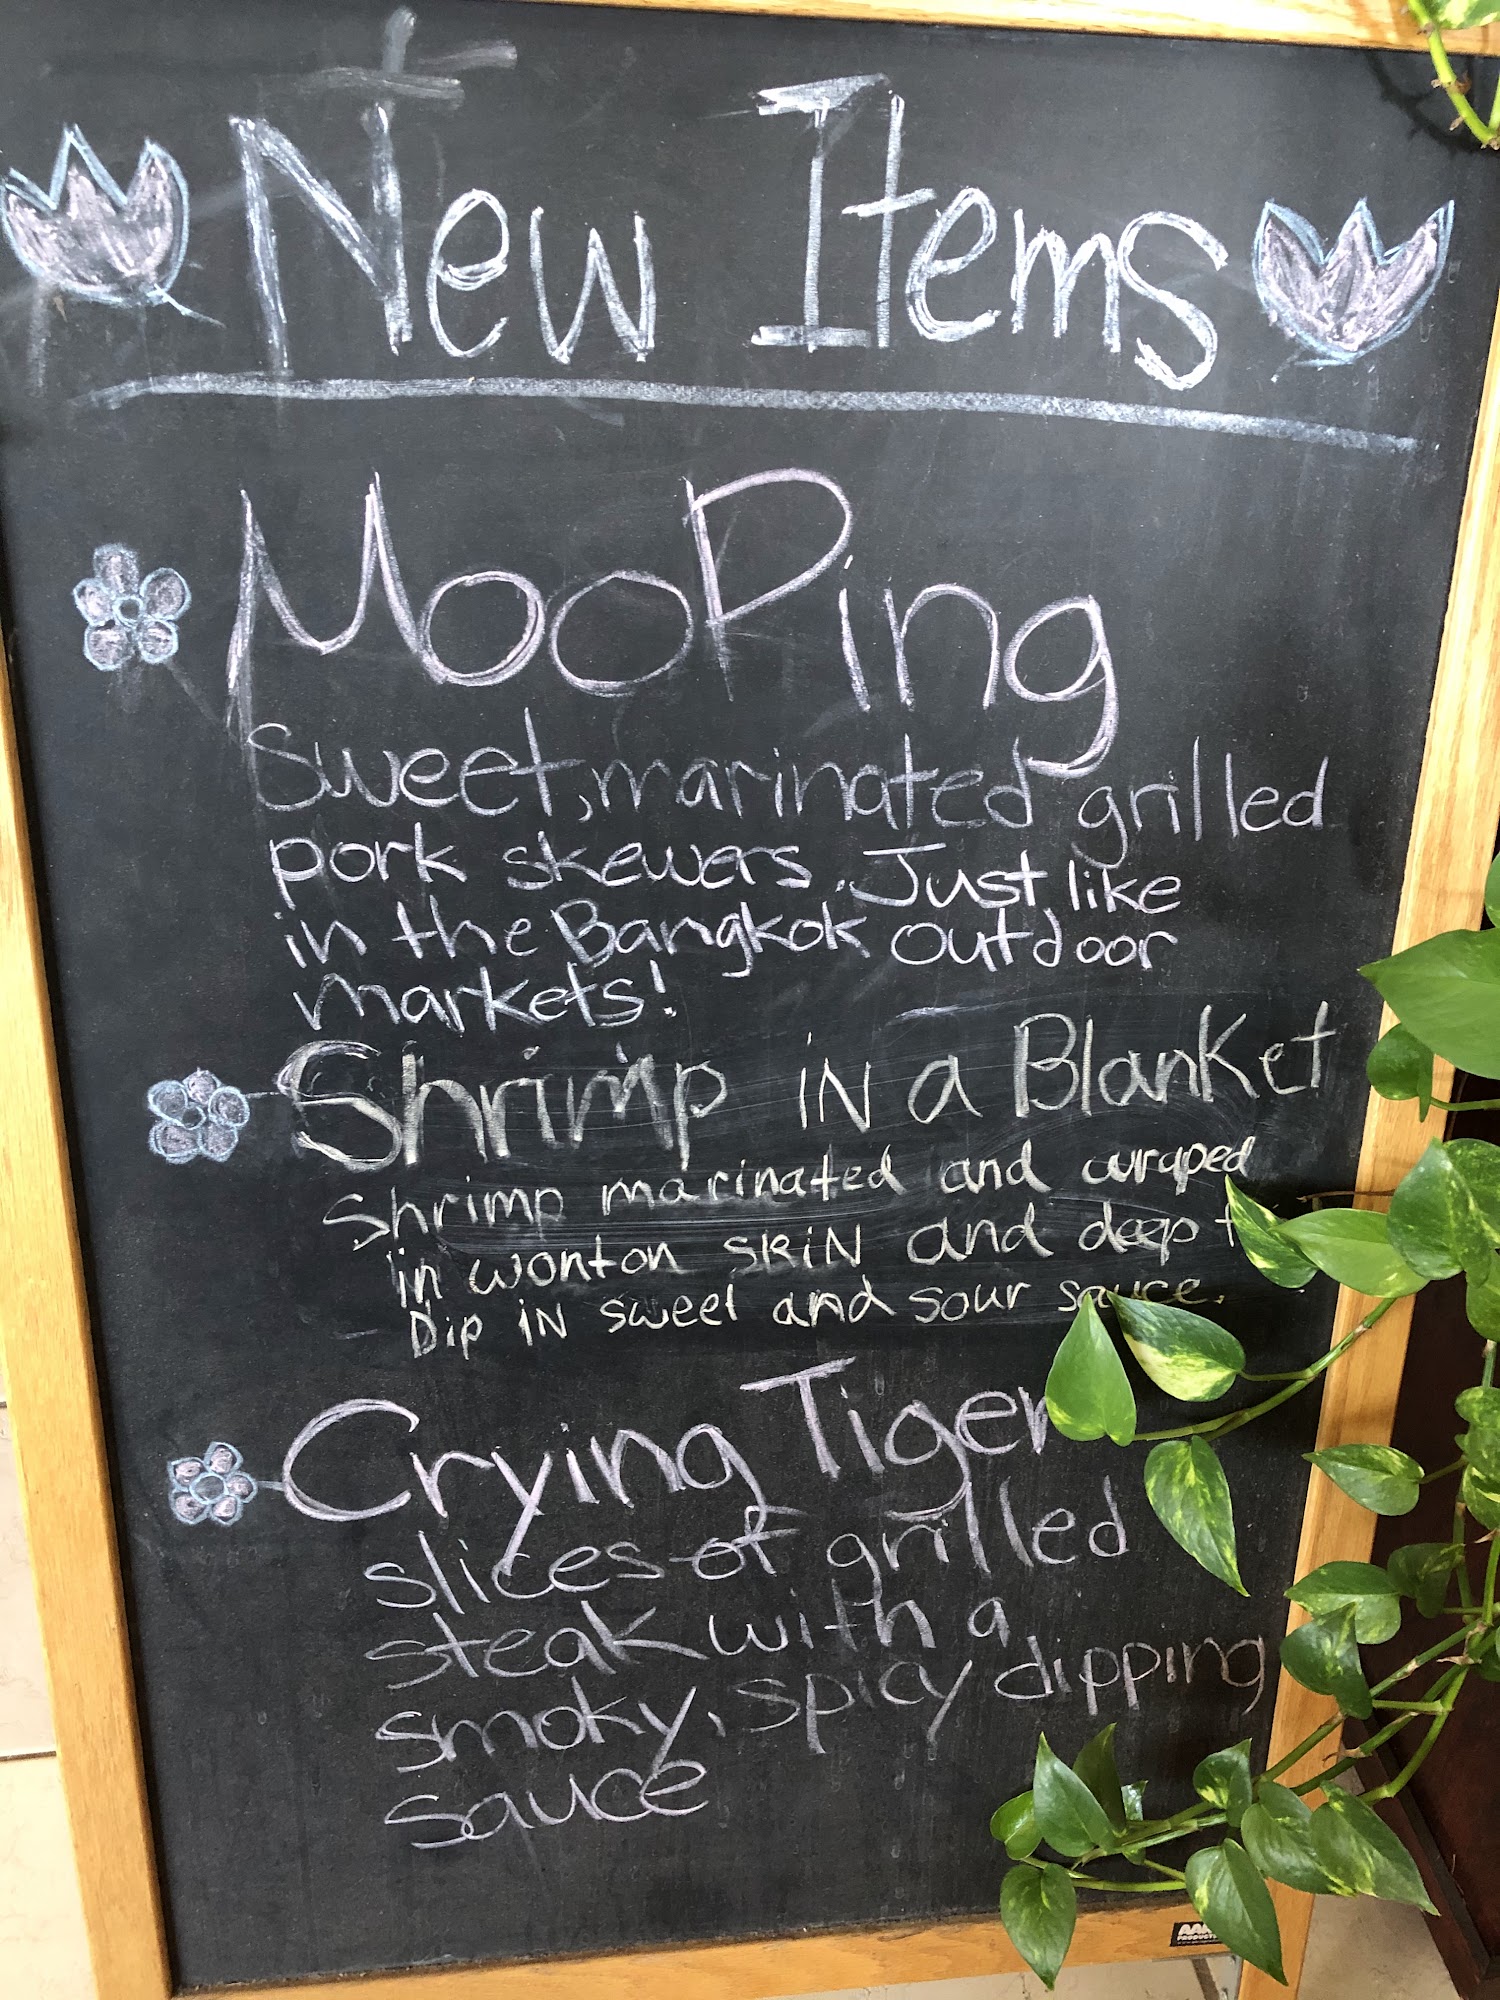 New Items
MooPing
Sweet, marinated grilled
pork skewers. Just like
in the Bangkok outdoor
markets!
Shrimp iN a BlanKet
Shrimp marinated and wraped
in wonton SKiN and deep
Dip iN sweet and sour sauce.
Crying Tiger
slices of grilled
steak with a
smoky, spicy dipping
sauce